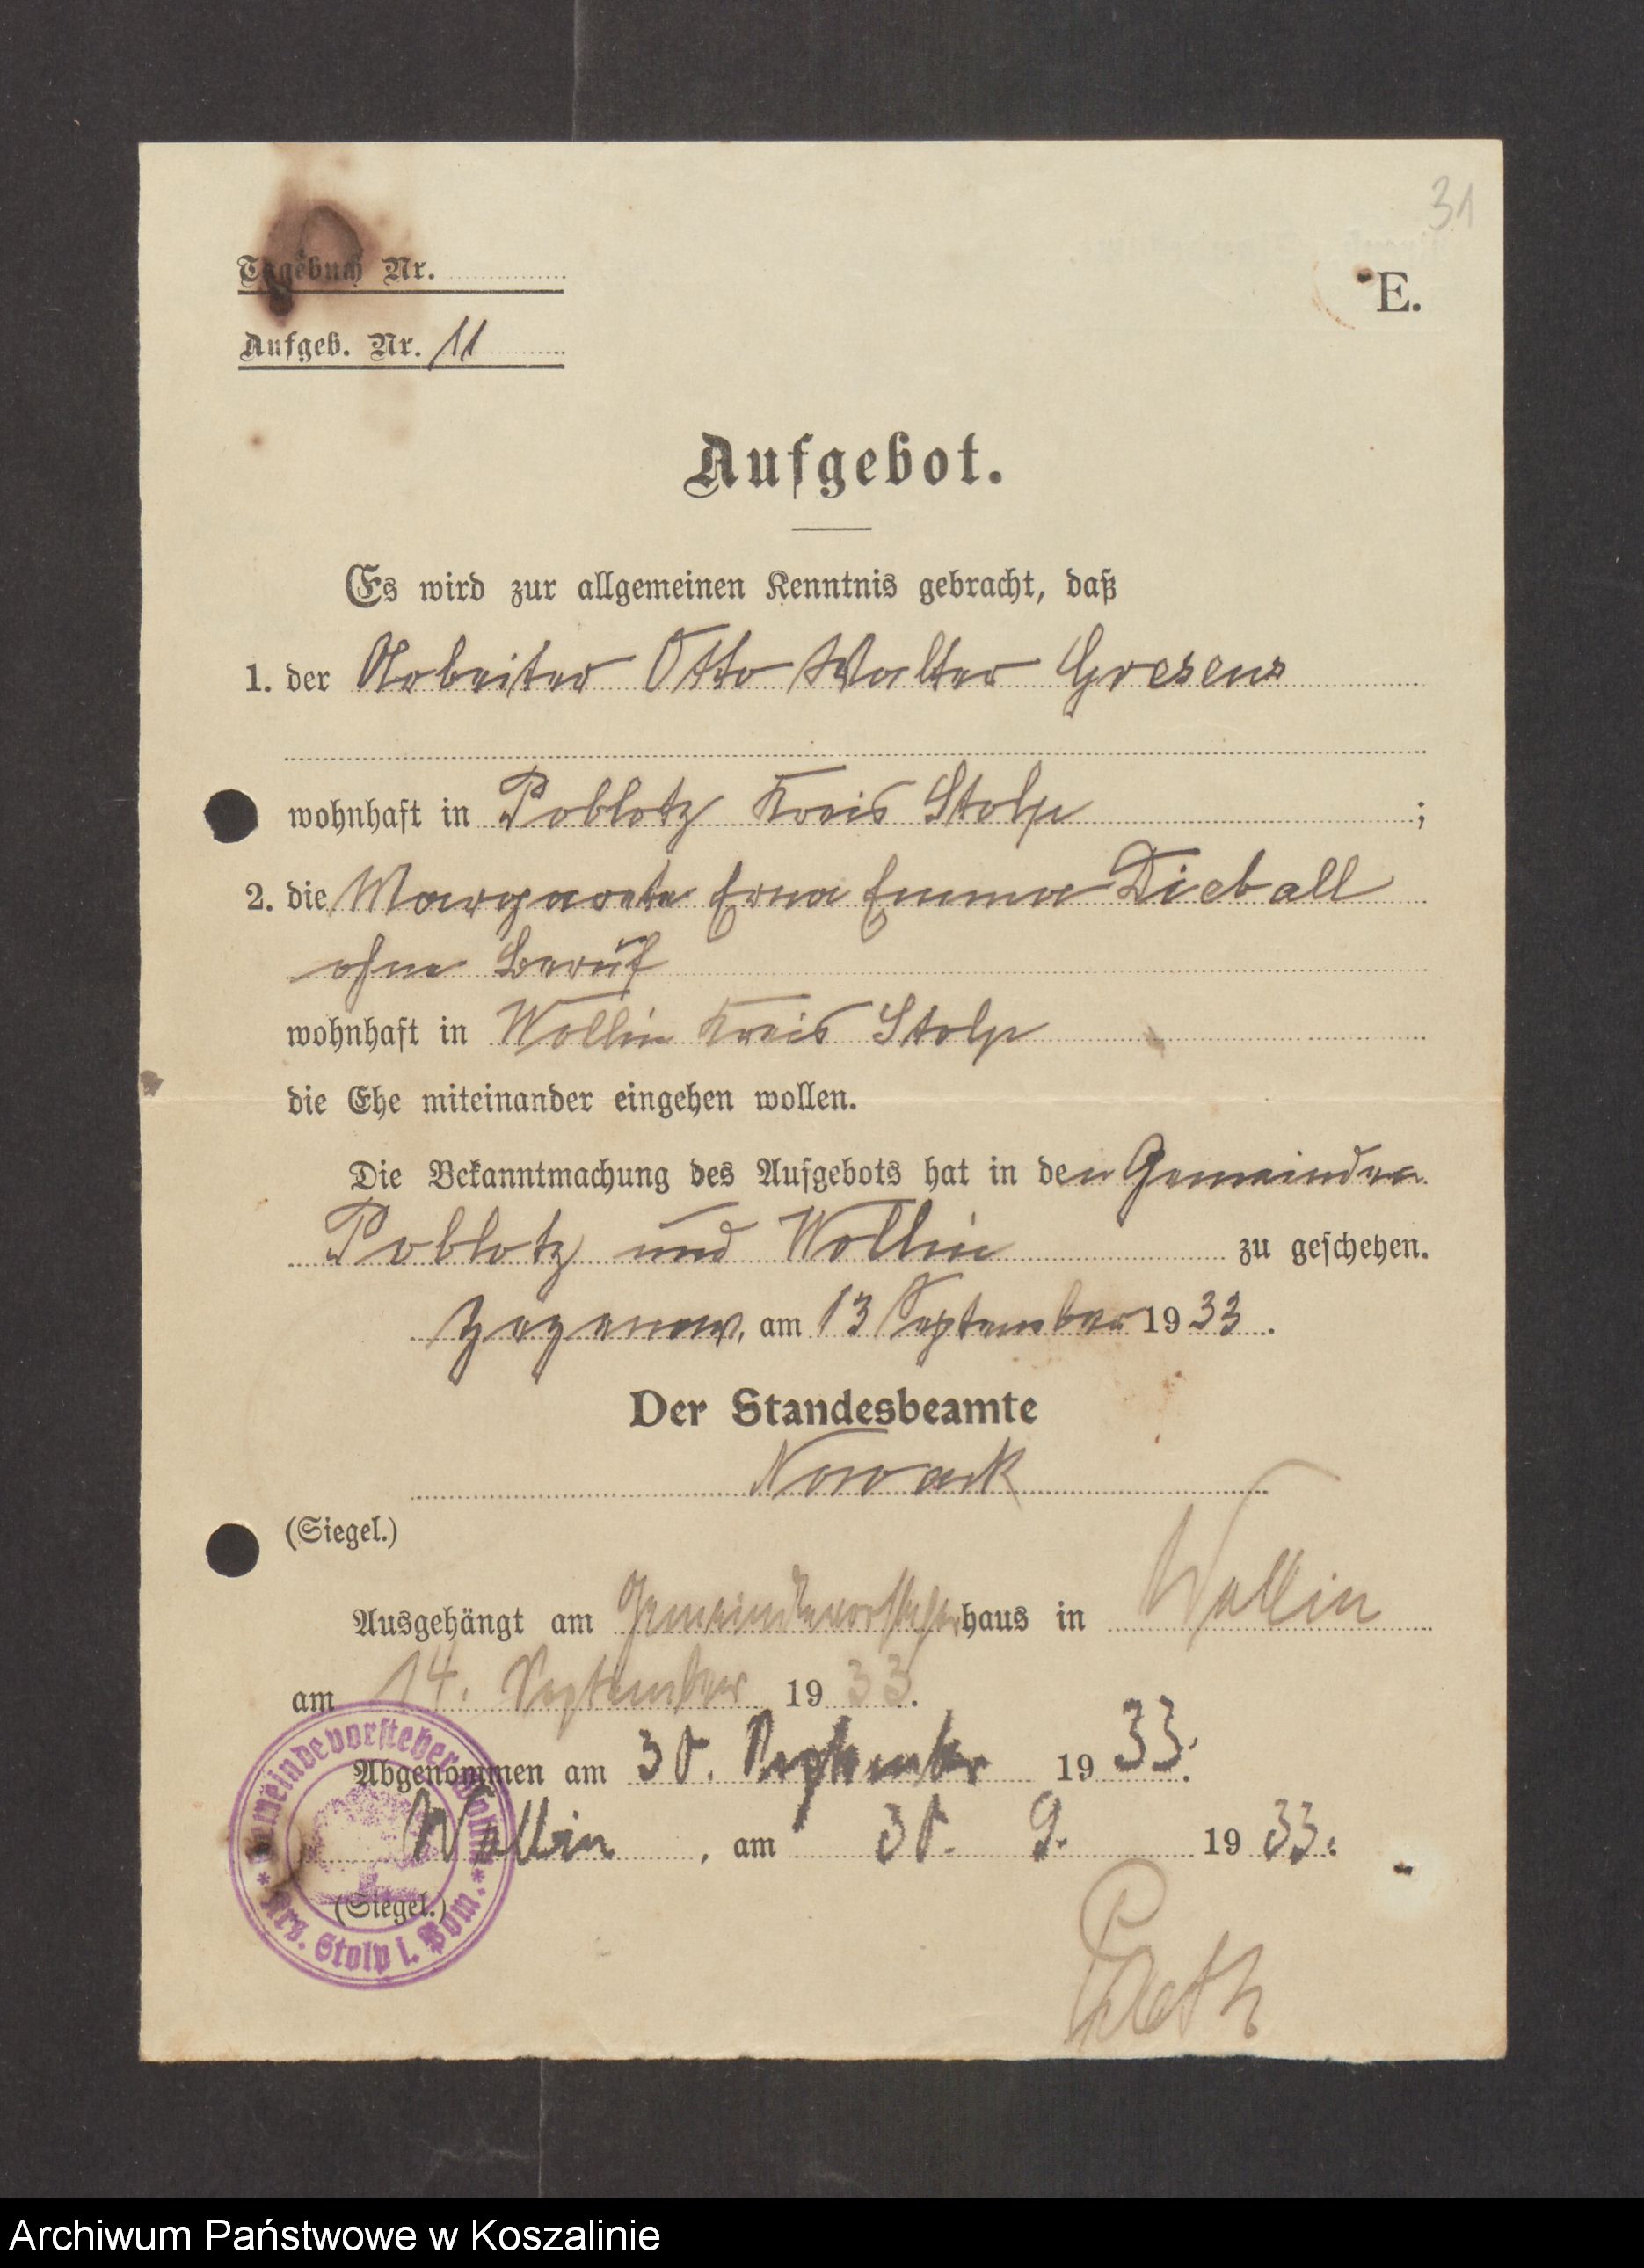 31
Tagebuch Nr.
E.
Aufgeb. Nr. 11
Aufgebot.
Es wird zur allgemeinen Kenntnis gebracht, daß
1. der Arbeiter Otto Walter Gresens
wohnhaft in Poblotz Kreis Stolp ;
2. die Margarete Erna Emma Dieball
ohne Beruf
wohnhaft in Wollin Kreis Stolp
die Ehe miteinander eingehen wollen.
Die Bekanntmachung des Aufgebots hat in den Gemeinden
Poblotz und Wollin zu geschehen.
Zezenow, am 13 September 1933.
Der Standesbeamte
Nowack
(Siegel.)
Ausgehängt am Gemeindevorsteherhaus in Wollin
am 14. September 1933.
Abgenommen am 30. September 1933.
Wollin, am 30. 9. 1933.
(Siegel.)
Gemeindevorsteher Wollin
* Krs. Stolp i. Pom. *
Archiwum Państwowe w Koszalinie